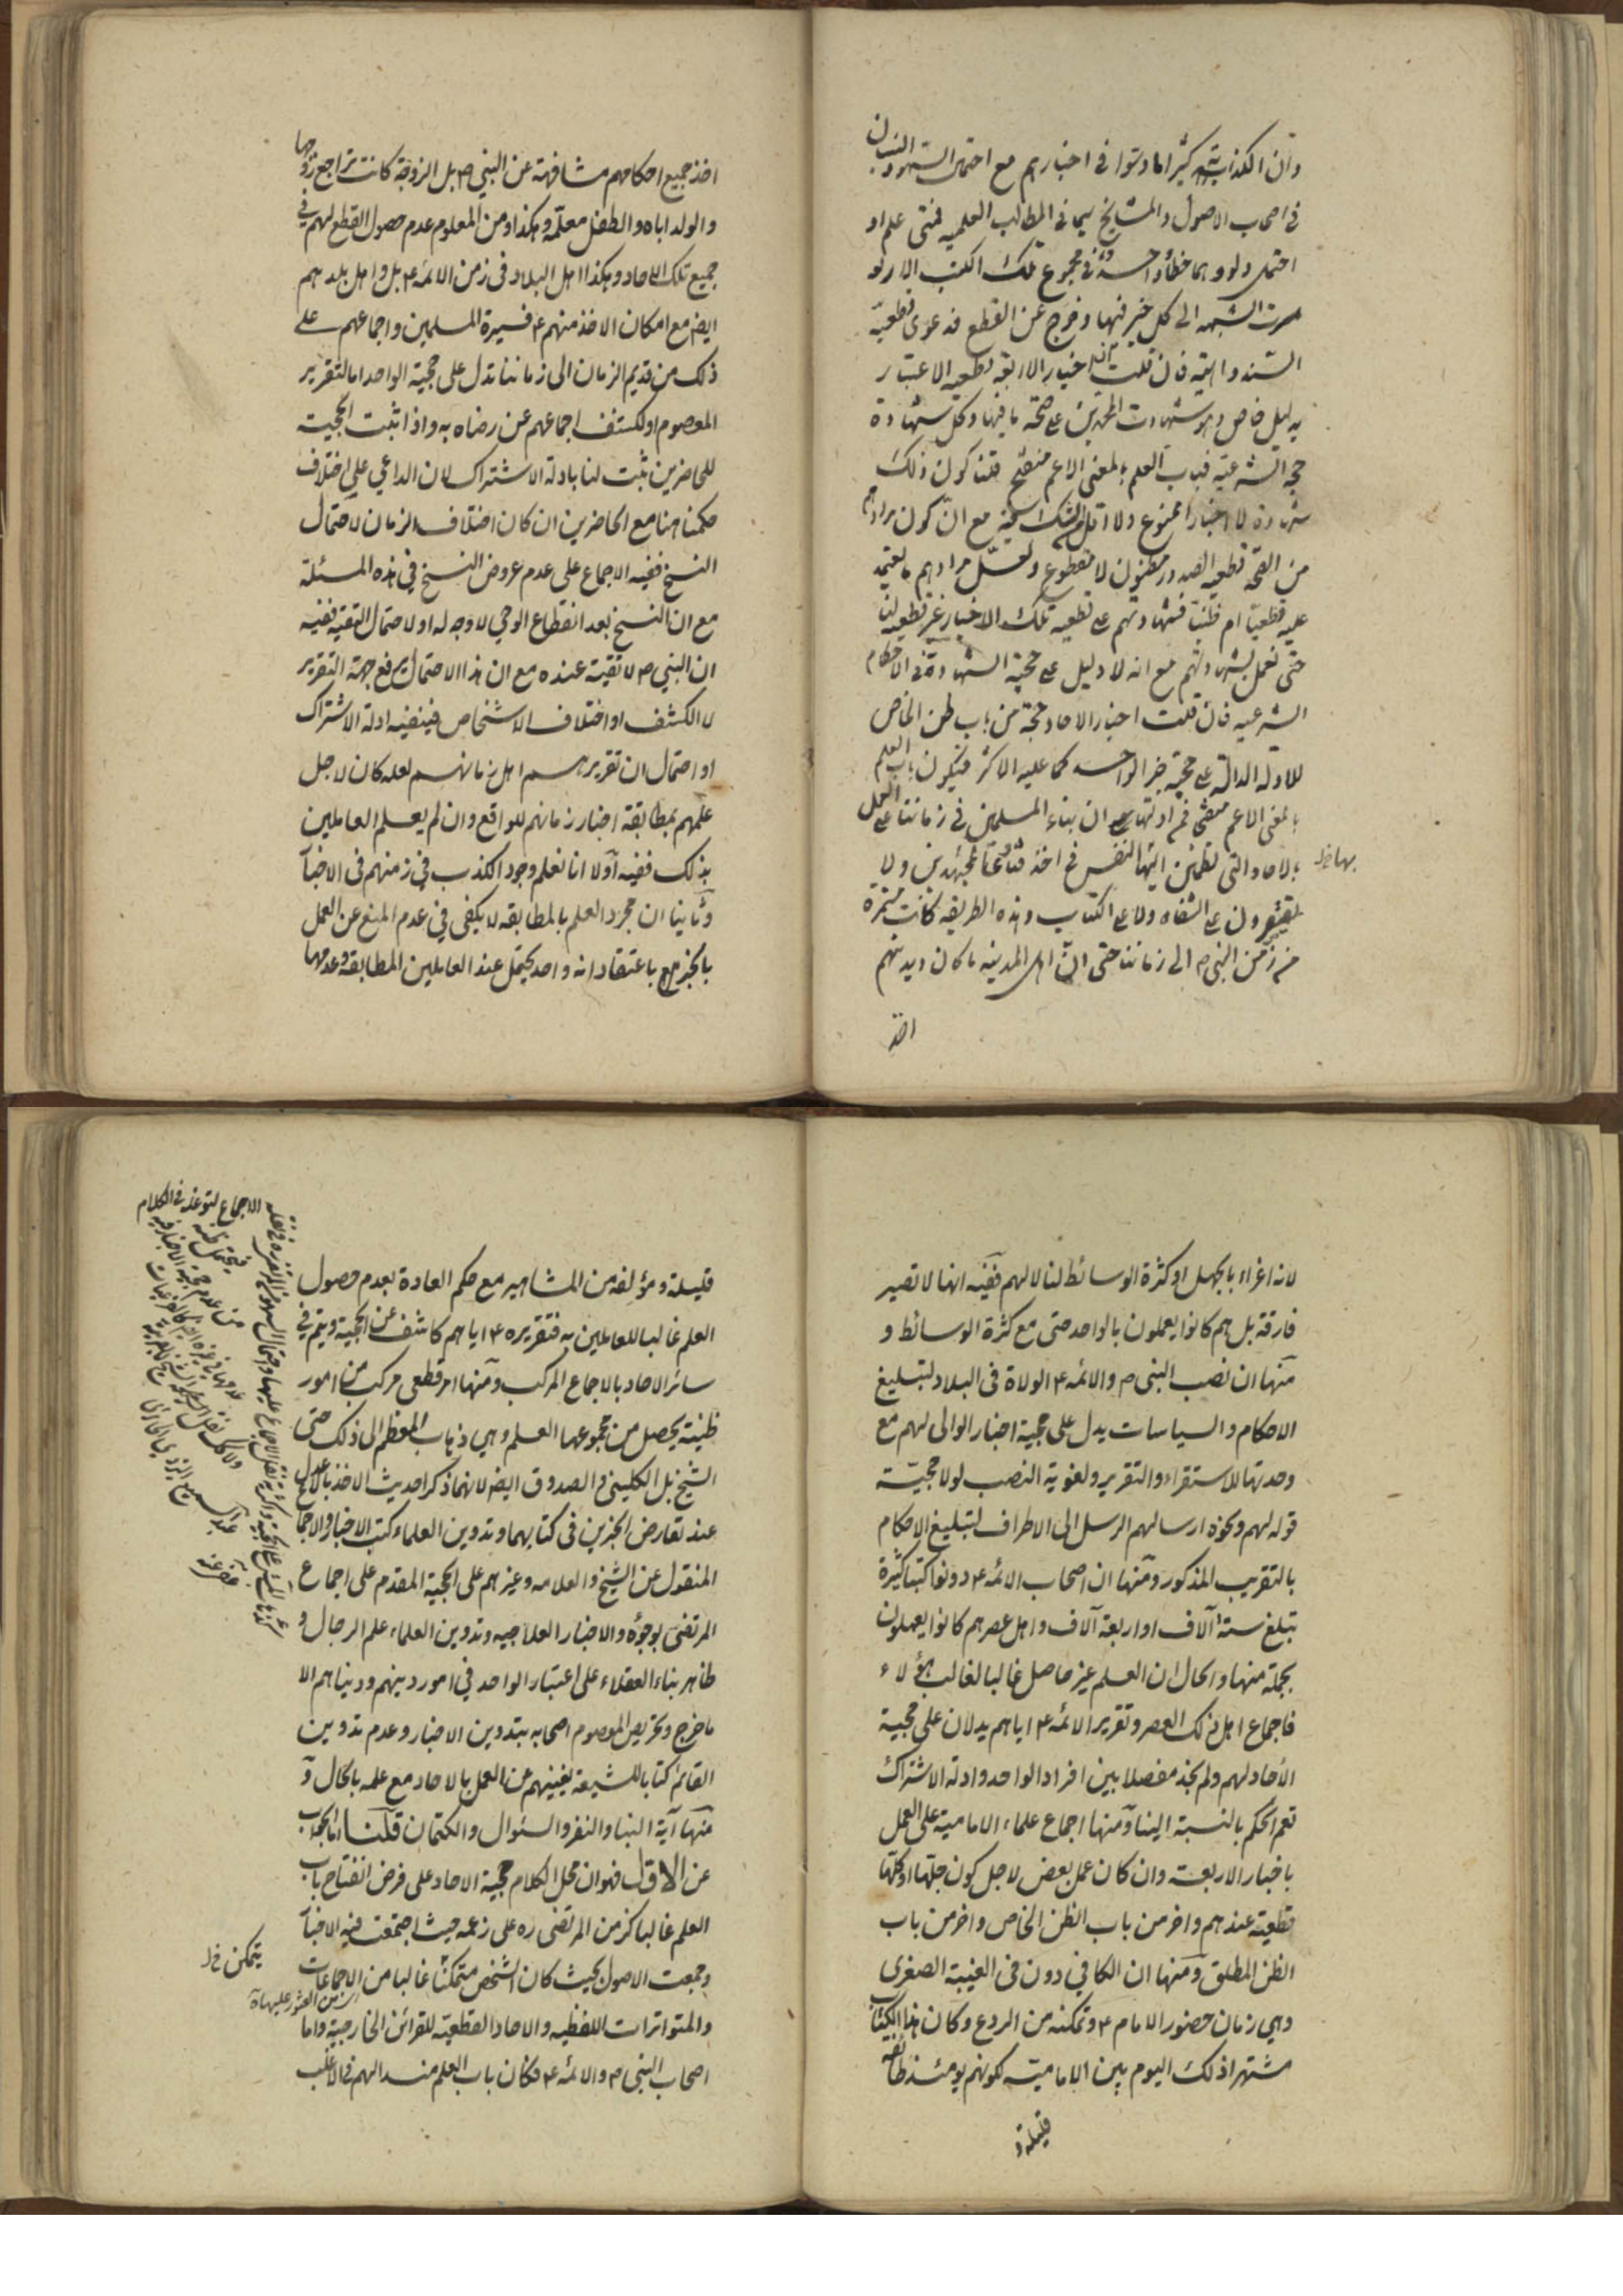 وان الكذابة كثيرا ما دسّوا في اخبارهم مع احتمال السهو والنسيان
في اصحاب الاصول والمشايخ سيما في المطالب العلمية فمتى علم او
احتمل ولو وهما خطأ واحد في مجموع تلك الكتب الاربعة
سرت الشبهه الى كل خبر فيها وخرج عن القطع فدعوى قطعية
السند واهية فان قلت ان اخبار الاربعة قطعية الاعتبار
بدليل خاص وهو شهادت المحمدين على صحة ما فيها وكل شهادة
حجة شرعية فباب العلم بالمعنى الاعم منفتح قلنا كون ذلك
شهادة لا اخبارا ممنوع ولا اقل من الشك مع ان كون مرادهم
من الصحة قطعية الصدور مظنون لا مقطوع ولعل مرادهم ما يعتمد
عليه قطعيا ام ظنيا فشهادتهم على قطعية تلك الاخبار غير قطعية لنا
حتى نعمل بشهادتهم مع انه لا دليل على حجية الشهادة في الاحكام
الشرعيه فان قلت اخبار الاحاد حجة من باب ظن الخاص
للادلة الدالة على حجية خبر الواحد كما عليه الاكثر فيكون باب العلم
بالمعنى الاعم منفتحا فمن ادلتها ان بناء المسلمين في زماننا على العمل
بالاحاد التي تطمئن اليها النفس في اخذ فتاوى مجتهدين ولا
بها خ ل
يقتصرون على الشفاه ولا على الكتاب وهذه الطريقة كانت مستمرة
من زمن النبي ص الى زماننا حتى ان اهل المدينه ما كان ديدنهم
اخذ
اخذ جميع احكامهم مشافهة عن النبي ص بل الزوجة كانت تراجع زوجها
والولد اباه والطفل معلّمه وهكذا ومن المعلوم عدم حصول القطع لهم في
جميع تلك الاحاد وهكذا اهل البلاد في زمن الائمة ع بل واهل بلدهم
ايض مع امكان الاخذ منهم ع فسيرة المسلمين واجماعهم على
ذلك من قديم الزمان الى زماننا تدل على حجية الواحد اما لتقرير
المعصوم او لكشف اجماعهم عن رضاه به واذا ثبت الحجيت
للحاضرين ثبت لنا بادلة الاشتراك لان الداعي على اختلاف
حكمنا هنا مع الحاضرين ان كان اختلاف الزمان لاحتمال
النسخ ففيه الاجماع على عدم عروض النسخ في هذه المسئلة
مع ان النسخ بعد انقطاع الوحي لا وجه له او لاحتمال التقية ففيه
ان النبي ص لا تقية عنده مع ان هذا الاحتمال يرفع جهة التقرير
لا الكشف او اختلاف الاشخاص فينفيه ادلة الاشتراك
او احتمال ان تقريرهم اهل زمانهم لعله كان لاجل
علمهم بمطابقة اخبار زمانهم للواقع وان لم يعلم العاملين
بذلك ففيه اولا انا نعلم وجود الكذب في زمنهم في الاخبار
وثانيا ان مجرد العلم بالمطابقه لا يكفى في عدم المنع عن العمل
بالخبر مع باعتقاد انه واحد يحتمل عند العاملين المطابقة وعدمها
لانه اغراء بالجهل او كثرة الوسائط لنا لا لهم ففيه انها لا تصير
فارقة بل هم كانوا يعملون بالواحد حتى مع كثرة الوسائط و
منها ان نصب النبي ص والائمه ع الولاة في البلاد لتبليغ
الاحكام والسياسات يدل على حجية اخبار الوالى لهم مع
وحدتها للاستقراء والتقرير ولغوية النصب لولا حجيّة
قوله لهم ونحوه ارسالهم الرسل الى الاطراف لتبليغ الاحكام
بالتقريب المذكور ومنها ان اصحاب الائمه ع دونوا كتبا كثيرة
تبلغ ستة آلاف او اربعة آلاف واهل عصرهم كانوا يعملون
بجملة منها والحال ان العلم غير حاصل غالبا لغالب هؤلاء
فاجماع اهل ذلك العصر وتقرير الائمه ع اياهم يدلان على حجية
الأحاد لهم ولم نجد مفصلا بين افراد الواحد وادلة الاشتراك
تعم الحكم بالنسبة الينا ومنها اجماع علماء الامامية على العمل
باخبار الاربعة وان كان عمل بعض لاجل كون جلّها او كلّها
قطعية عندهم واخر من باب الظن الخاص واخر من باب
الظن المطلق ومنها ان الكافي دون في الغيبة الصغرى
وهي زمان حضور الامام ع وتمكنه من الردع وكان هذا الكتاب
مشتهرا ذلك اليوم بين الامامية لكونهم يومئذ طائفة
قليلة و
قليلة ومؤلفه من المشاهير مع حكم العادة بعدم حصول
العلم غالبا للعاملين به فتقريره ع اياهم كاشف عن الحجية ويتم في
سائر الاحاد بالاجماع المركب ومنها امر قطعي مركب من امور
ظنية يحصل من مجموعها العلم وهي ذهاب المعظم الى ذلك حتى
الشيخ بل الكليني والصدوق ايض لانهما ذكرا حديث الاخذ بالاعدل
عند تعارض الخبرين في كتابيهما وتدوين العلماء كتب الاخبار والاجماع
المنقول عن الشيخ والعلامه وغيرهم على الحجية المقدم على اجماع
المرتضى بوجوه والاخبار العلاجيه وتدوين العلماء علم الرجال و
ظاهر بناء العقلاء على اعتبار الواحد في امور دينهم ودنياهم الا
ما خرج وتحريص المعصوم اصحابه بتدوين الاخبار وعدم تدوين
القائم كتابا للشيعة يغنيهم عن العمل بالاحاد مع علمه بالحال و
منها آية النبا والنفر والسئوال والكتمان قلنا اما الجواب
عن الاول فهو ان محل الكلام حجية الاحاد على فرض انفتاح باب
العلم غالبا كزمن المرتضى ره على زعمه حيث اجتمعت فيه الاخبار
وجمعت الاصول بحيث كان الشخص متمكنا غالبا من الاجماعات
يتمكن خ ل
من العثور عليها
والمتواترات اللفظيه والاحاد القطعيّه للقرائن الخارجية واما
اصحاب النبي ص والائمه ع فكان باب العلم منسدا لهم في الاغلب
الاجماع لتوغله في الكلام